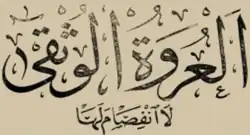 اَلْعُرْوَةُ الْوُثْقَى
لَا انْفِصَامَ لَهَا